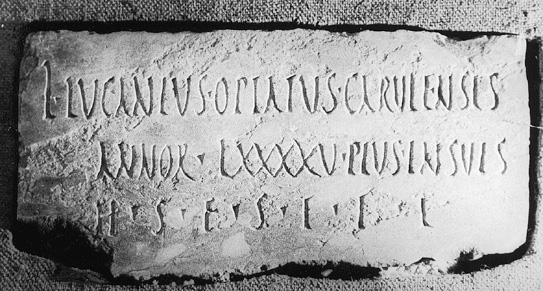 L·LVCANIVS·OPTATVS·CARVLENSIS
ANNOR·LXXXXV·PIVS·IN SVIS
H·S·E·S·T·T·L